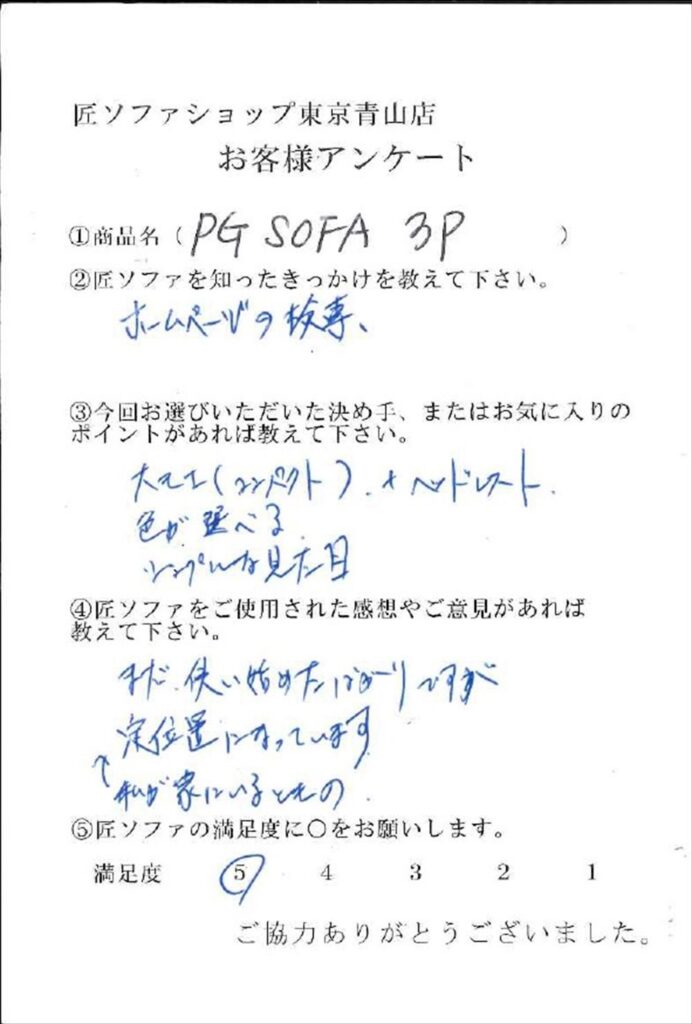 匠ソファショップ東京青山店
お客様アンケート
①商品名（PG SOFA 3P）
②匠ソファを知ったきっかけを教えて下さい。
ホームページの検索、
③今回お選びいただいた決め手、またはお気に入りの
ポイントがあれば教えて下さい。
大きさ(コンパクト)、+ヘッドレスト.
色が選べる
シンプルな見た目
④匠ソファをご使用された感想やご意見があれば
教えて下さい。
まだ使い始めたばかりですが
定位置になっています
↑私が家にいるときの
⑤匠ソファの満足度に〇をお願いします。
満足度 5 4 3 2 1
ご協力ありがとうございました。